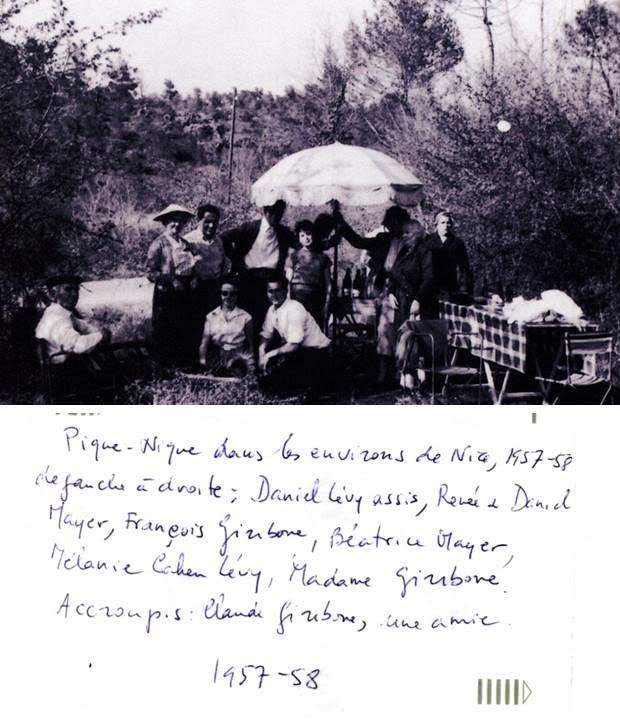 Pique-Nique dans les environs de Nice, 1957-58
de gauche à droite : Daniel Lévy assis, Renée et Daniel
Mayer, François Giribone, Béatrice Mayer,
Mélanie Cahen Lévy, Madame Giriboné.
Accroupis : Claude Giribone, une amie.
1957-58